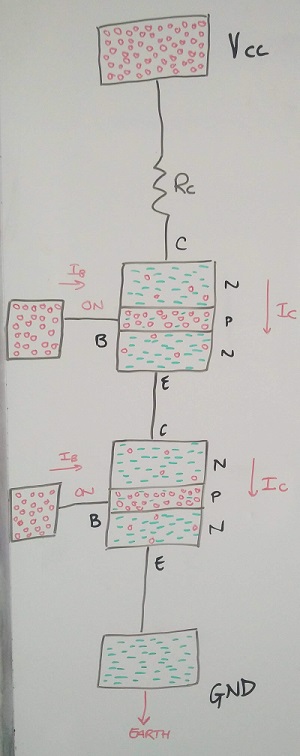 Vcc
Rc
C
IB
ON
N
P
N
Ic
B
E
C
IB
ON
N
P
N
Ic
B
E
GND
EARTH